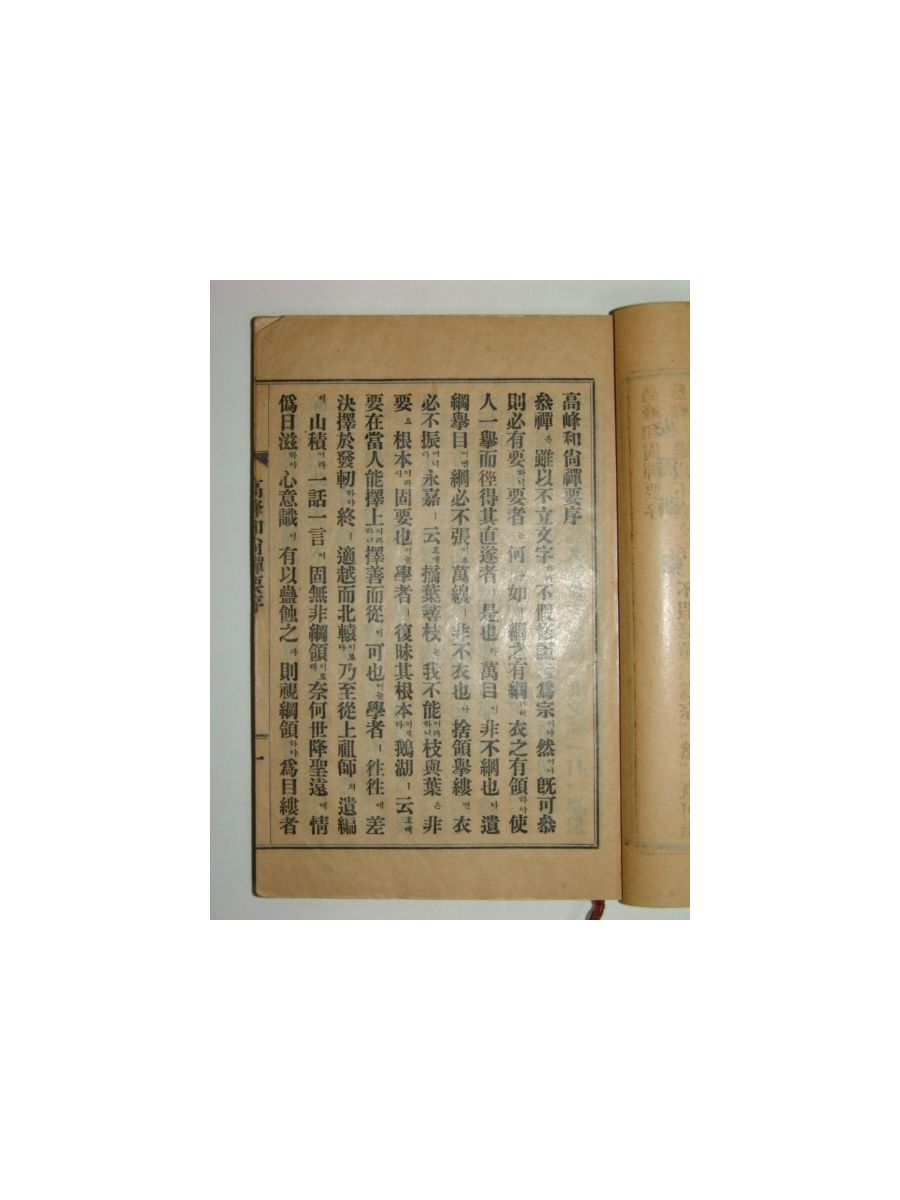 高峰和尙禪要序
叅禪은雖以不立文字하며不假修證으로爲宗이나然이나旣可叅
則必有要하니要者는何오如綱之有綱하며衣之有領하야使
人一擧而徑得其直遂者是也라萬目이非不綱也나遺
綱擧目이면綱必不張이오萬縷ㅣ非不衣也나捨領擧縷면衣
必不振이라永嘉ㅣ云호대摘葉尋枝는我不能이라하니枝與葉은非
要요根本이라사固要也어늘學者ㅣ復昧其根本이로다鵝湖ㅣ云호대
要在當人能擇上이라하니擇善而從이可也어늘學者ㅣ徃徃에差
決擇於發軔하야終ㅣ適越而北轅이로다乃至從上祖師의遺編
이山積이라一話一言이固無非綱領이로대奈何世降聖遠에情
僞日滋하야心意識이有以蠱蝕之라則視綱領하야爲目縷者
高峰和尙禪要序
一